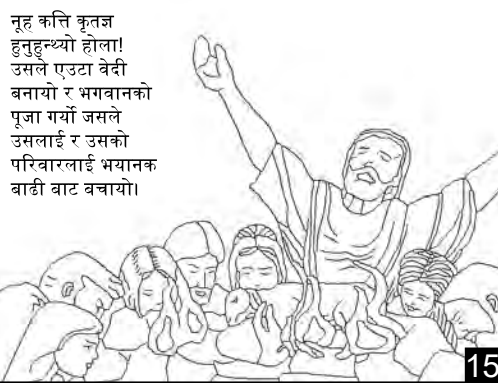 नूह कत्ति कृतज्ञ
हुनुहुन्थ्यो होला!
उसले एउटा वेदी
बनायो र भगवानको
पूजा गर्यो जसले
उसलाई र उसको
परिवारलाई भयानक
बाढी बाट बचायो।
15